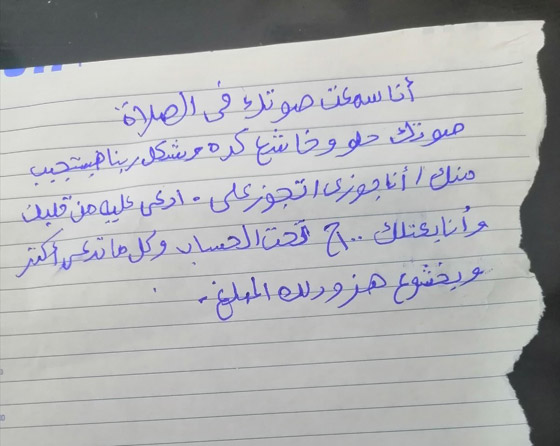 أنا سمعت صوتك فى الصلاة
صوتك حلو وخاشع كده وشكل ربنا هيستجيب
منك / أنا جوزى اتجوز على . ادعى عليه من قلبك
وأنا بعتلك ١٠٠ج تحت الحساب وكل ما تدعى أكتر
وبخشوع هزودلك المبلغ .